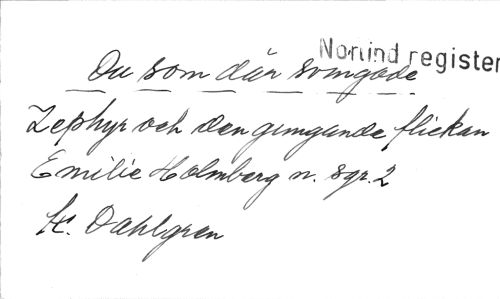 Norlind register
Du som där svingade
Zephyr och den gungande flickan
Emilie Holmberg n. sgr. 2
Fr. Dahlgren